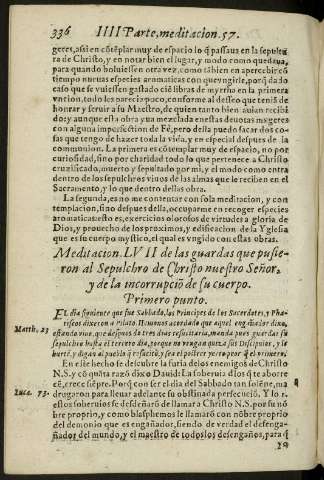 336 IIII Parte, meditacion. 57.
geres, assi en cõtẽplar muy de espacio lo q̃ passaua en la sepultu
ra de Christo, y en notar bien el lugar, y modo como quedaua,
para quando boluiessen otra vez, como tãbien en apercebir cõ
tiempo nueuas especies aromaticas con que vngirle, porq̃ dado
caso que se vuiessen gastado ciẽ libras de myrrha en la primera
vncion, todo les parecia poco, conforme al desseo que teniã de
honrar y seruir a su Maestro, de quien tanto bien auian recibi
do: y aunque esta obra yua mezclada en estas deuotas mugeres
con alguna imperfection de Fê, pero della puedo sacar dos co-
sas que tengo de hazer toda la vida, y en especial despues de la
communion. La primera es cõtemplar muy de espacio, no por
curiosidad, sino por charidad todo lo que pertenece a Christo
cruzificado, muerto y sepultado por mi, y el modo como entra
dentro de los sepulchres viuos de las almas que le reciben en el
Sacramento, y lo que dentro dellas obra.
La segunda, es no me contentar con sola meditacion, y con
templacion, sino despues della, occuparme en recoger especies
aromaticas: esto es, exercicios olorosos de virtudes a gloria de
Dios, y prouecho de los proximos, y edificacion de la Yglesia
que es su cuerpo mystico, el qual es vngido con estas obras.
Meditacion. LVII de las guardas que pusie-
ron al Sepulchro de Christo nuestro Señor,
y de la incorrupciõ de su cuerpo.
Primero punto.
EL dia siguiente que fue Sabbado, los Principes de los Sacerdotes, y Pha-
Matth. 23
riseos dixeron a Pilato. Hemonos acordado que aquel engañador dixo,
estando viuo, que despues de tres dias resucitaria, manda pues guardar su
sepulchro hasta el tercero dia, porque no vengan quiza sus Discipulos, y le
hurtẽ, y digan al pueblo q̃ resucitô, y sea el postrer yerro peor q̃ el primero.
En este hecho de descubre la furia delos enemigos de Christo
N.S. y cõ quãta razõ dixo Dauid: La soberuia dlos q̃ te aborre
Luce. 73.
cẽ, crece siẽpre. Porq̃ con ser el dia del Sabbado tan solẽne, ma
drugaron para lleuar adelante su obstinada perfecuciõ. Y los
estos soberuios se desdeñarõ de llamar a Christo N.S. por su nõ
bre proprio, y como blasphemos le llamarõ con nõbre proprio
del demonio que es engañador, siendo de verdad el desenga-
ñador del mundo, y el maestro de todos los desengaños, para q̃